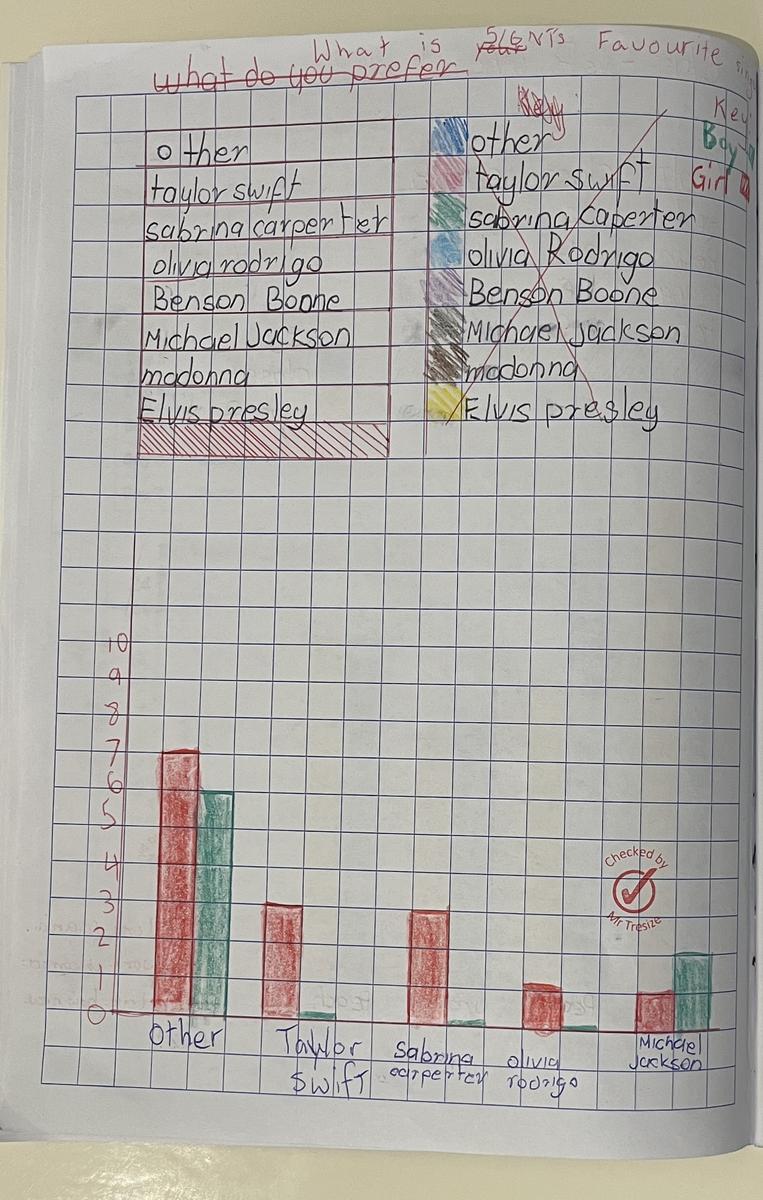 What is your 5/6 NTs Favourite sing
what do you prefer
Key
Key:
Boy
Girl
other
taylor swift
sabrina carperter
olivia rodrigo
Benson Boone
Michael Jackson
madonna
Elvis presley
other
taylor swift
sabrina caperter
olivia Rodrigo
Benson Boone
Michael Jackson
madonna
Elvis presley
10
9
8
7
6
5
4
3
2
1
0
Checked by
Mr Tresize
Other
Taylor
Swift
Sabrina
carperter
olivia
rodrigo
Michael
Jackson